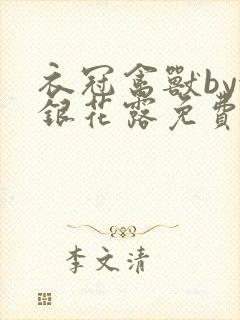 衣冠禽獸by
銀花露免費
李文清